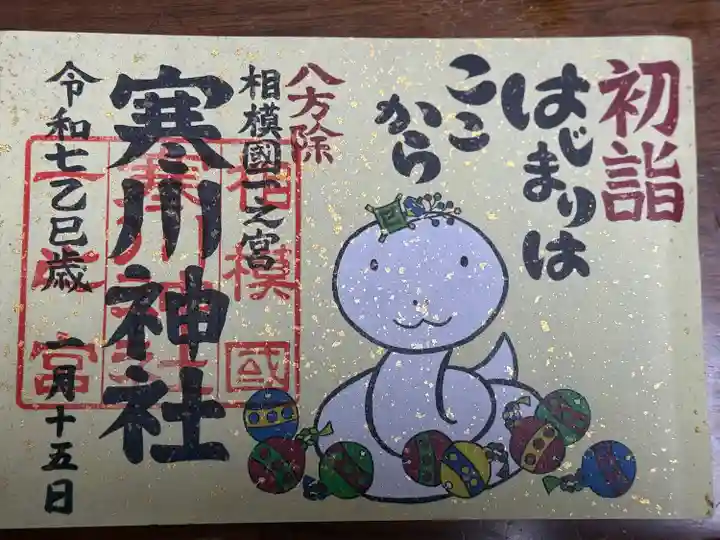 初詣
はじまりは
ここ
から
八方除
相模國一之宮
寒川神社
令和七乙巳歳 一月十五日
相模國
寒川神社
一之宮